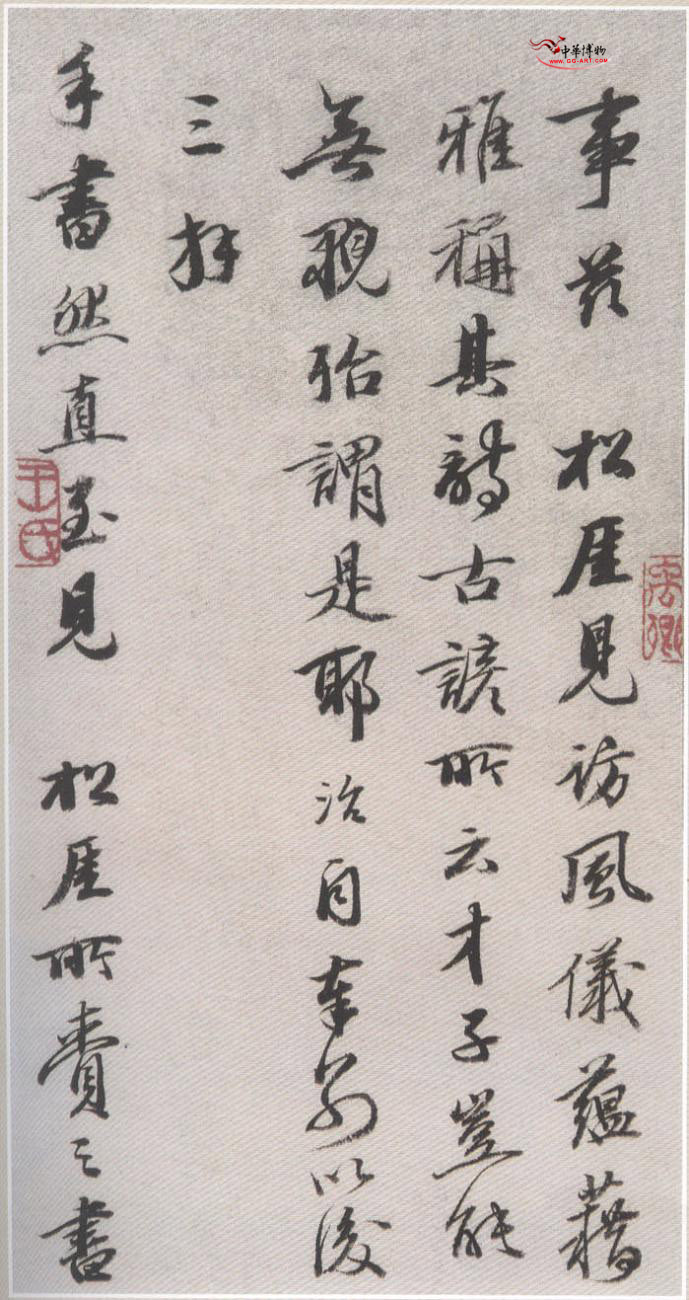 中華博物
WWW.GG-ART.COM
事茲 松厓見訪風儀蘊藉
雅稱其詩古諺所云才子豈能
無貌殆謂是耶治自奉別以後
三拜
手書然直至見 松厓所賫之書
禹卿
王氏